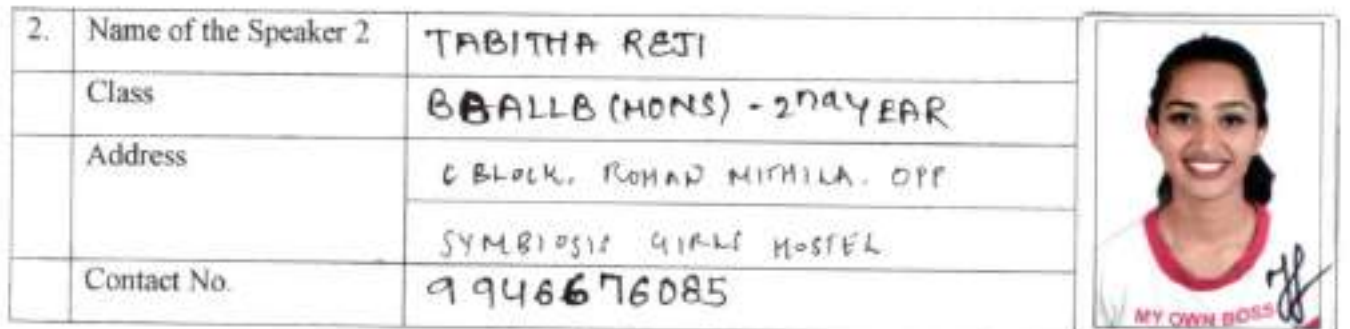 2. Name of the Speaker 2 TABITHA REJI
Class BBALLB (HONS) - 2nd YEAR
Address C BLOCK, ROHAN MITHILA. OPP
SYMBIOSIS GIRLS HOSTEL
Contact No. 9946676085
MY OWN BOSS